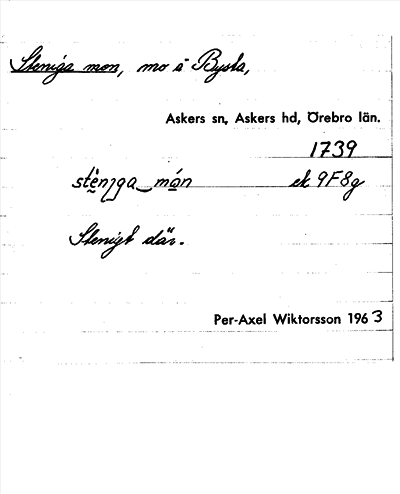 Steniga mon, mo i Bysta,
Askers sn, Askers hd, Örebro län.
1739
stèn̥ga‿món ek 9F8g
Stenigt där.
Per-Axel Wiktorsson 1963